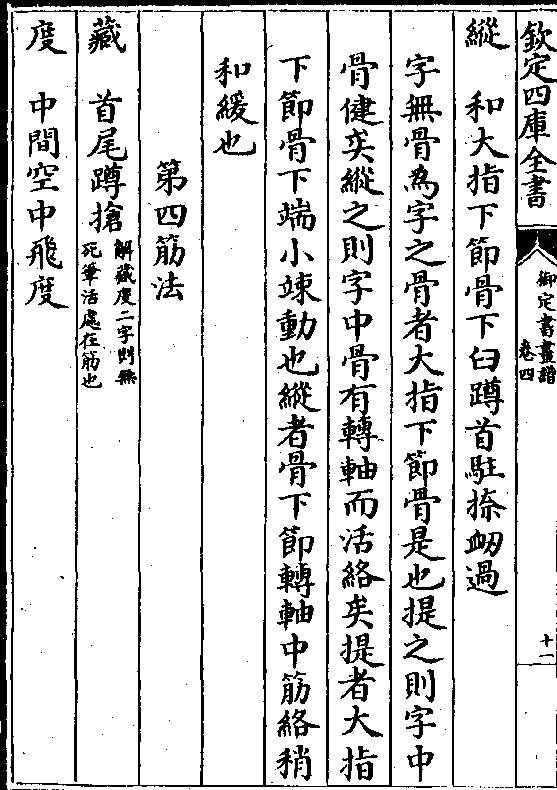 欽定四庫全書
御定書畫譜
卷四
十一
縱　和大指下節骨下臼蹲首駐捺衂過
字無骨為字之骨者大指下節骨是也提之則字中
骨健矣縱之則字中骨有轉軸而活絡矣提者大指
下節骨下端小竦動也縱者骨下節轉軸中筋絡稍
和緩也
第四筋法
藏　首尾蹲搶解藏度二字則無
死筆活處在筋也
度　中間空中飛度